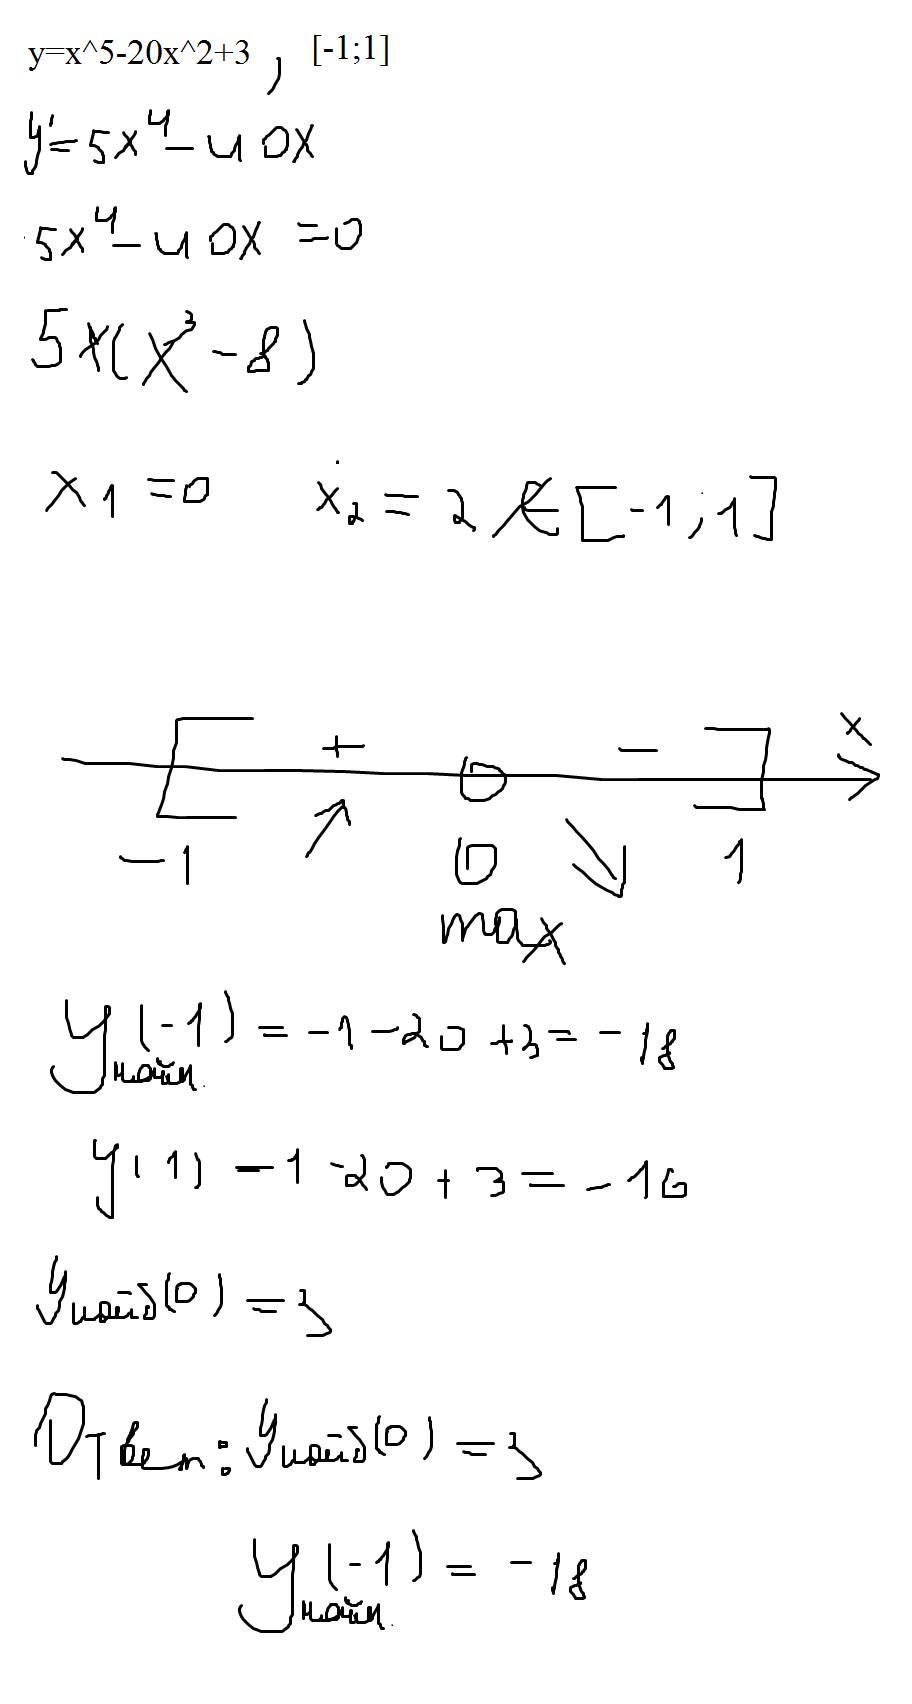 y=x^5-20x^2+3 , [-1;1]
y'=5x⁴-40x
5x⁴-40x=0
5x(x³-8)
x₁=0 x₂=2∉[-1;1]
+ - x
-1 0 1
max
y найм.(-1)=-1-20+3=-18
y(1)-1-20+3=-16
y найб(0)=3
Ответ: y найб(0)=3
y найм.(-1)=-18